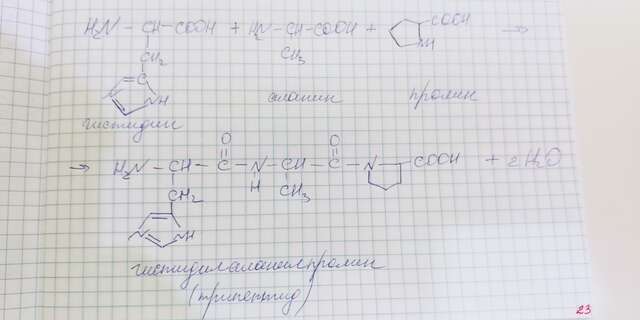 H₂N – CH – COOH + H₂N – CH – COOH + COOH →
CH₂ CH₃ NH
C
N NH
гистидин аланин пролин
→ H₂N – CH – C – N – CH – C – N COOH + 2H₂O
O O
H
CH₂ CH₃
N NH
гистидилаланилпролин
(трипептид)
23